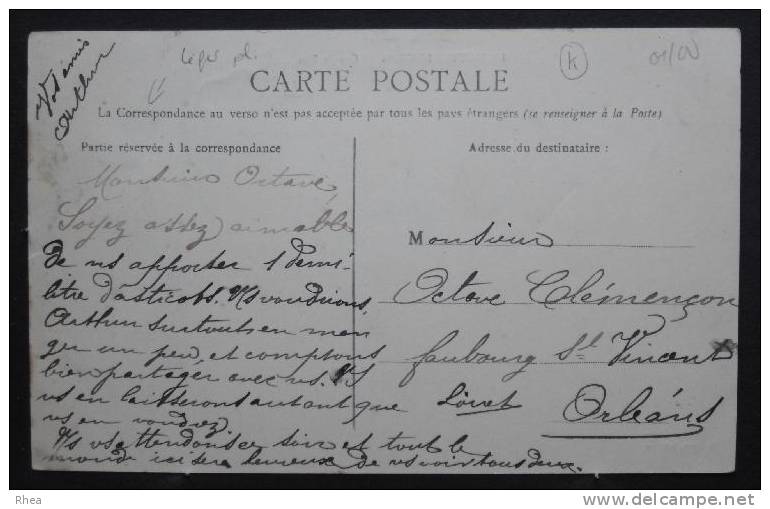 Vos amis
Arthur
01/00
K
CARTE POSTALE
La Correspondance au verso n'est pas acceptée par tous les pays étrangers (se renseigner à la Poste)
Partie réservée à la correspondance
Monsieur Octave,
Soyez assez aimable
de ns apporter 1 demi-
litre d'asticots. Ns voudrions,
Arthur surtout, en man
ger un peu, et comptons
bien partager avec vs. Ns
vs en laisserons autant que
vs en voudrez.
Ns vs attendons ce soir et tout le
monde ici sera heureux de vs voir tous deux.
Adresse du destinataire :
Monsieur
Octave Clémençon
faubourg St Vincent
Orléans
Loiret
Rhea
www.delcampe.net